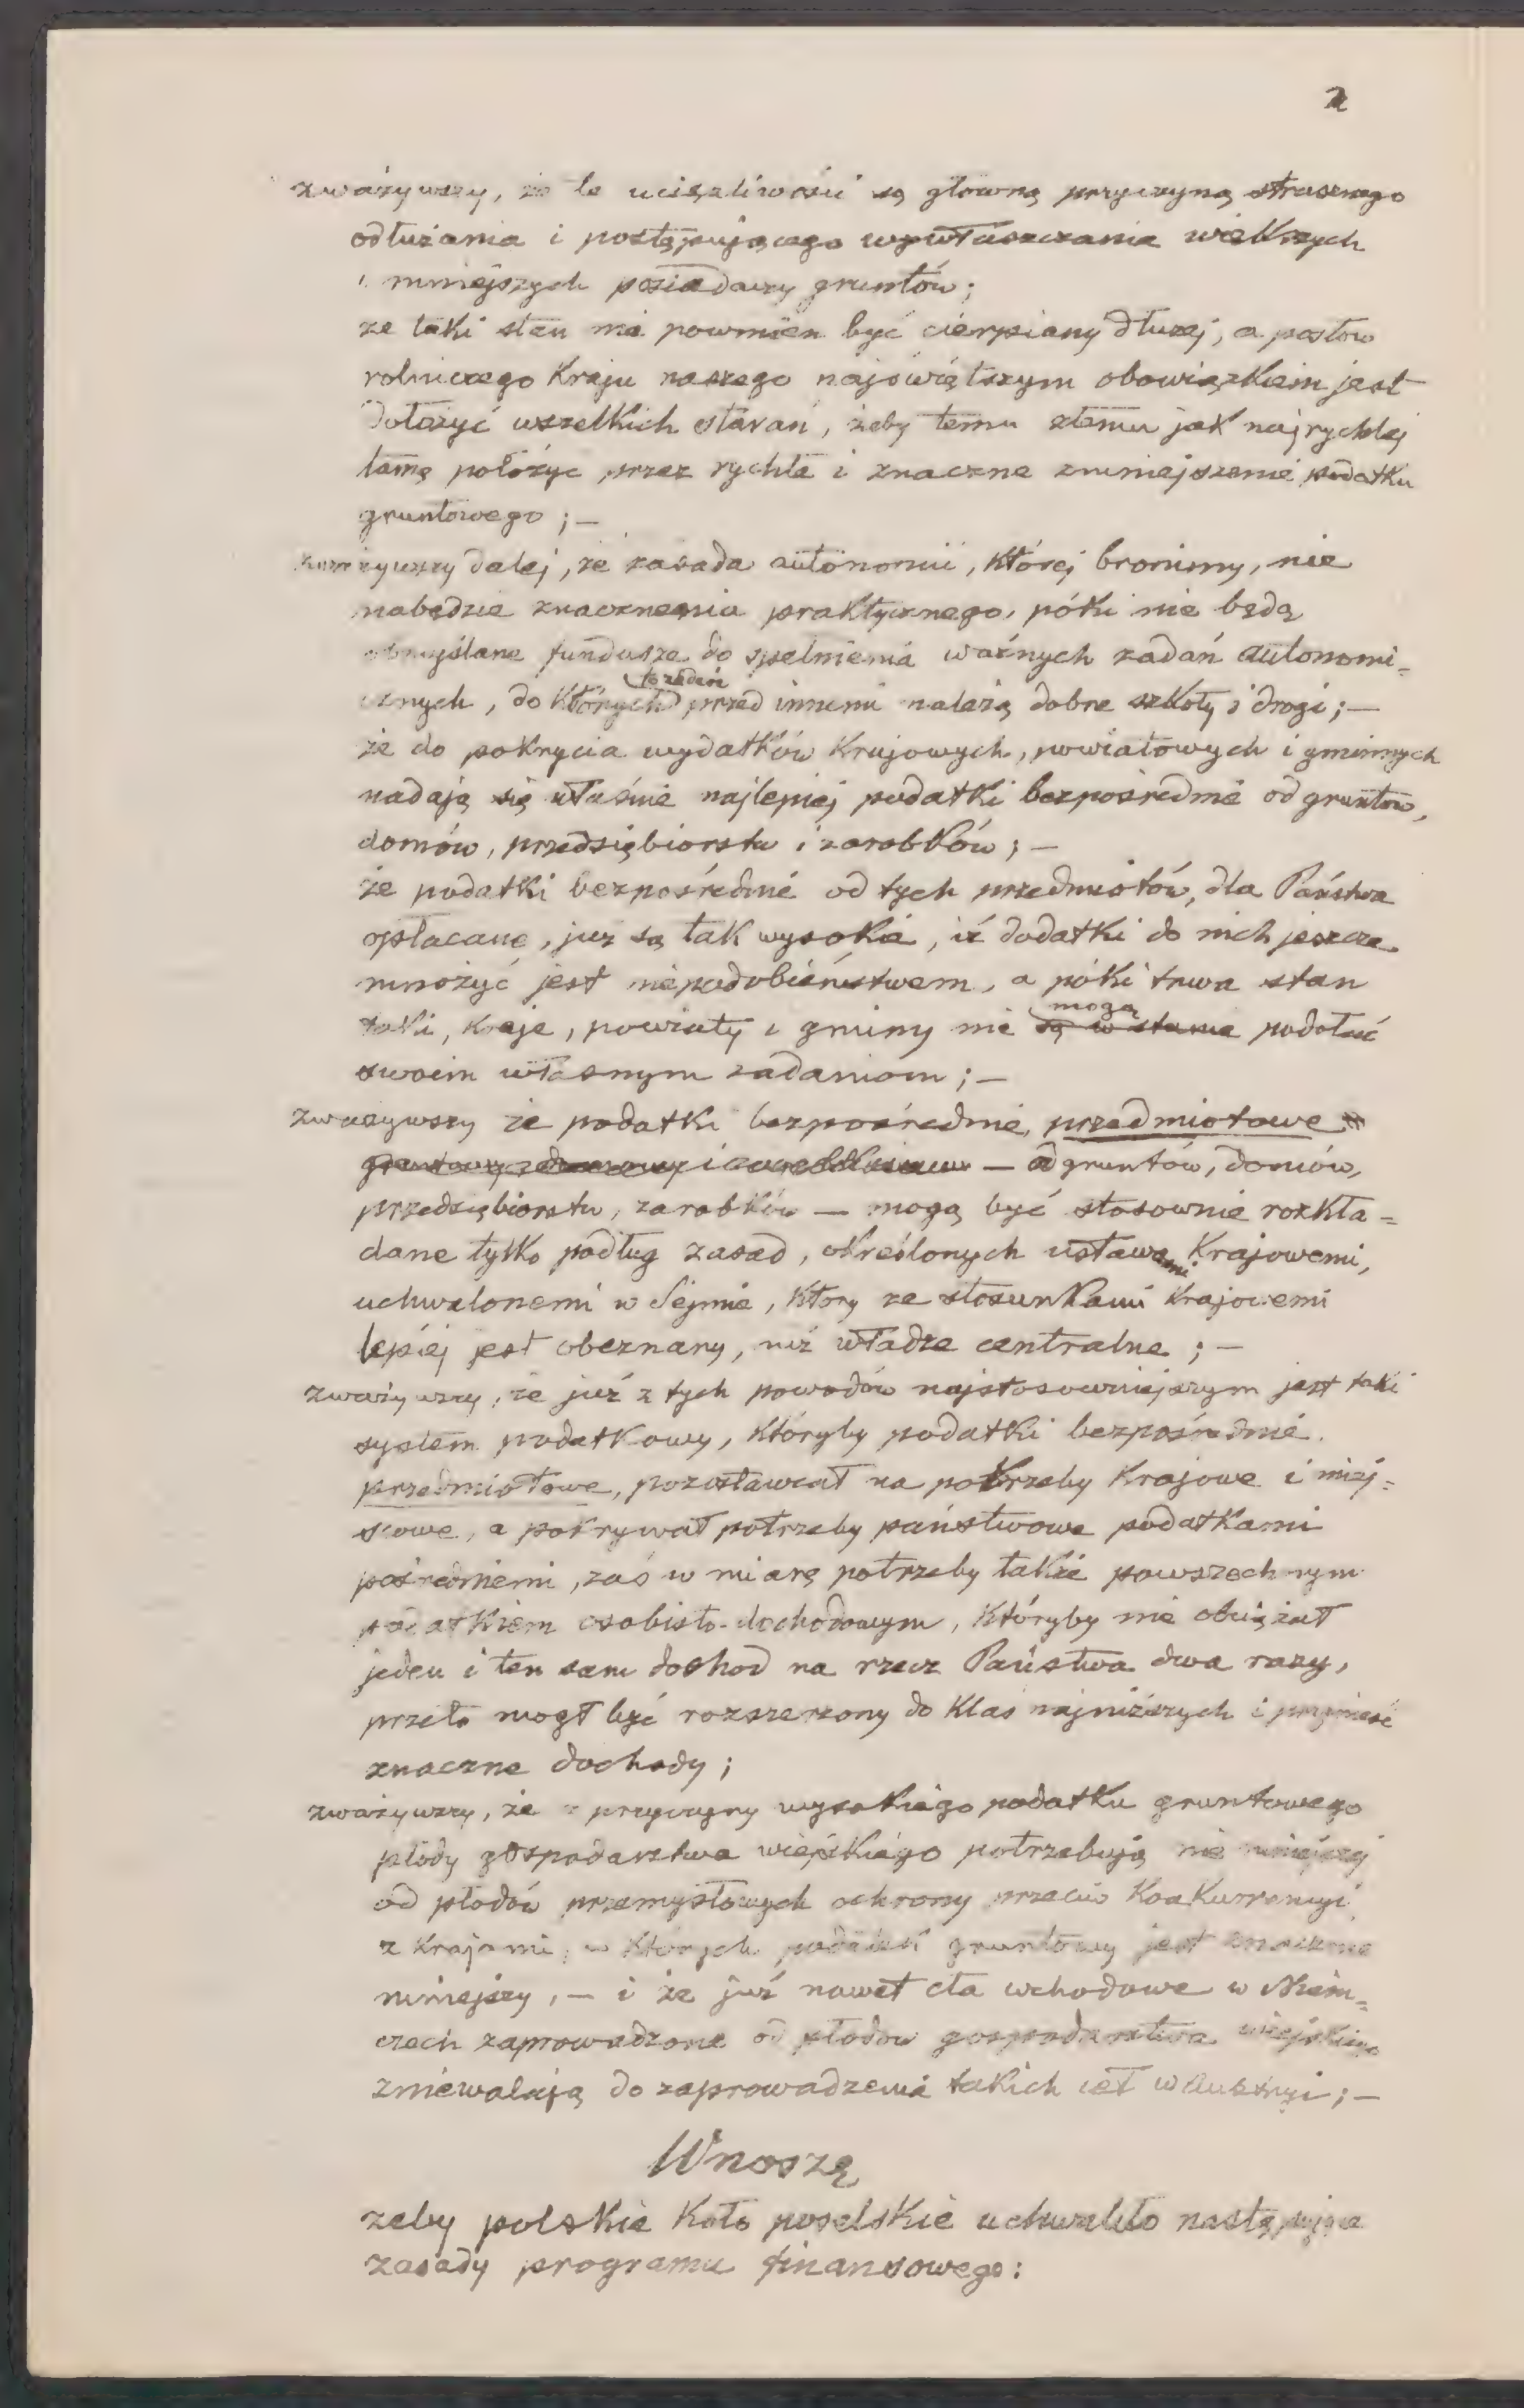 2
zważywszy, że te uciążliwości są główną przyczyną strasznego
odłużania i postępującego wywłaszczania większych
i mniejszych posiadaczy gruntów;
że taki stan nie powinien być cierpiany dłużej, a posłów
rolniczego Kraju naszego najświętszym obowiązkiem jest
dołożyć wszelkich starań, żeby temu złemu jak najrychlej
tamę położyć przez rychłe i znaczne zmniejszenie podatku
gruntowego; —
zważywszy dalej, że zasada autonomii, której bronimy, nie
nabędzie znaczenia praktycznego, póki nie będą
obmyślane fundusze do spełnienia ważnych zadań autonomi=
cznych, do których przed innemi należą dobre szkoły i drogi; —
że do pokrycia wydatków Krajowych, powiatowych i gminnych
nadają się właśnie najlepiej podatki bezpośrednie od gruntów,
domów, przedsiębiorstw i zarobków; —
że podatki bezpośrednie od tych przedmiotów, dla Państwa
opłacane, już są tak wysokie, iż dodatki do nich jeszcze
mnożyć jest niepodobieństwem, a póki trwa stan
taki, kraje, powiaty i gminy nie są w stanie mogą podołać
swoim własnym zadaniom; —
zważywszy że podatki bezpośrednie, przedmiotowe
— od gruntów, domów,
przedsiębiorstw, zarobków — mogą być stosownie rozkła=
dane tylko podług zasad, określonych ustawami Krajowemi,
uchwalonemi w Sejmie, który ze stosunkami Krajowemi
lepiej jest obeznany, niż władze centralne; —
zważywszy, że już z tych powodów najstosowniejszym jest taki
system podatkowy, któryby podatki bezpośrednie
przedmiotowe, pozostawiał na potrzeby Krajowe i miej=
scowe, a pokrywał potrzeby państwowe podatkami
pośredniemi, zaś w miarę potrzeby także powszechnym
podatkiem osobisto-dochodowym, któryby nie obciążał
jeden i ten sam dochod na rzecz Państwa dwa razy,
przeto mogł być rozszerzony do klas najniższych i przynieść
znaczne dochody;
zważywszy, że z przyczyny wysokiego podatku gruntowego
płody gospodarstwa wiejskiego potrzebują nie mniejszej
od płodów przemysłowych ochrony przeciw Konkurrencyi
z Krajami, w których podatek gruntowy jest znacznie
mniejszy, — i że już nawet cła wchodowe w Niem=
czech zaprowadzone od płodów gospodarstwa wiejskiego
zniewalają do zaprowadzenia takich ceł w Austryi; —
Wnoszę
żeby polskie Koło poselskie uchwaliło następujące
zasady programu finansowego: